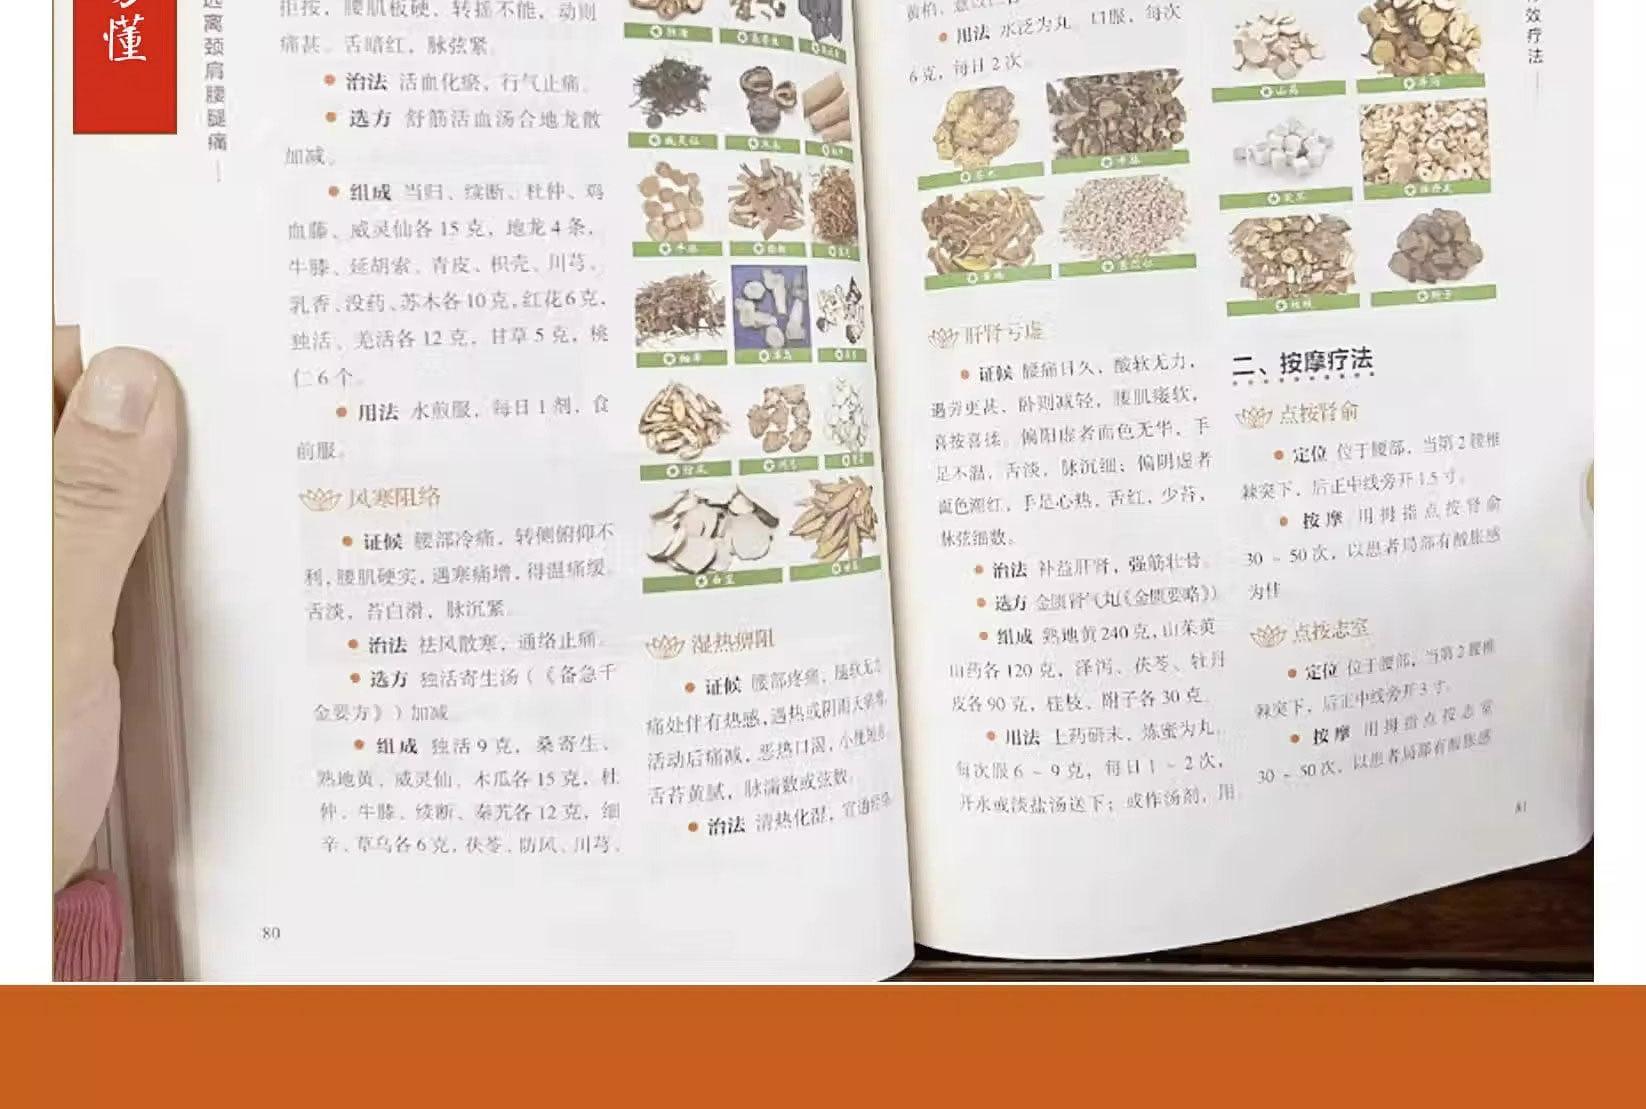 懂
远离颈肩腰腿痛
拒按，腰肌板硬，转摇不能，动则
痛甚。舌暗红，脉弦紧。
治法 活血化瘀，行气止痛。
选方 舒筋活血汤合地龙散
加减。
组成 当归、续断、杜仲、鸡
血藤、威灵仙各 15 克，地龙 4 条，
牛膝、延胡索、青皮、枳壳、川芎、
乳香、没药、苏木各 10 克，红花 6 克，
独活、羌活各 12 克，甘草 5 克，桃
仁 6 个。
用法 水煎服，每日 1 剂，食
前服。
风寒阻络
证候 腰部冷痛，转侧俯仰不
利，腰肌硬实，遇寒痛增，得温痛缓。
舌淡，苔白滑，脉沉紧。
治法 祛风散寒，通络止痛。
选方 独活寄生汤（《备急千
金要方》）加减
组成 独活 9 克，桑寄生、
熟地黄、威灵仙、木瓜各 15 克，杜
仲、牛膝、续断、秦艽各 12 克，细
辛、草乌各 6 克，茯苓、防风、川芎、
80
威灵仙
牛膝
细辛
草乌
防风
湿热痹阻
证候 腰部疼痛，腿软无力
痛处伴有热感，遇热或阴雨天
活动后痛减，恶热口渴，小便
舌苔黄腻，脉濡数或弦数。
治法 清热化湿，宣通
用法 水泛为丸。口服，每次
6 克，每日 2 次。
苍术
牛膝
黄柏
薏苡仁
肝肾亏虚
证候 腰痛日久，酸软无力，
遇劳更甚，卧则减轻，腰肌痿软，
喜按喜揉。偏阳虚者面色无华，手
足不温，舌淡，脉沉细；偏阴虚者
面色潮红，手足心热，舌红，少苔，
脉弦细数。
治法 补益肝肾，强筋壮骨。
选方 金匮肾气丸(《金匮要略》)
组成 熟地黄 240 克，山茱萸
山药各 120 克，泽泻、茯苓、牡丹
皮各 90 克，桂枝、附子各 30 克。
用法 上药研末，炼蜜为丸。
每次服 6 ~ 9 克，每日 1 ~ 2 次，
开水或淡盐汤送下；或作汤剂，用
效疗法
山药
泽泻
茯苓
牡丹皮
桂枝
附子
二、按摩疗法
点按肾俞
定位 位于腰部，当第 2 腰椎
棘突下，后正中线旁开 1.5 寸。
按摩 用拇指点按肾俞
30 ~ 50 次，以患者局部有酸胀感
为佳
点按志室
定位 位于腰部，当第 2 腰椎
棘突下，后正中线旁开 3 寸。
按摩 用拇指点按志室
30 ~ 50 次，以患者局部有酸胀感
81